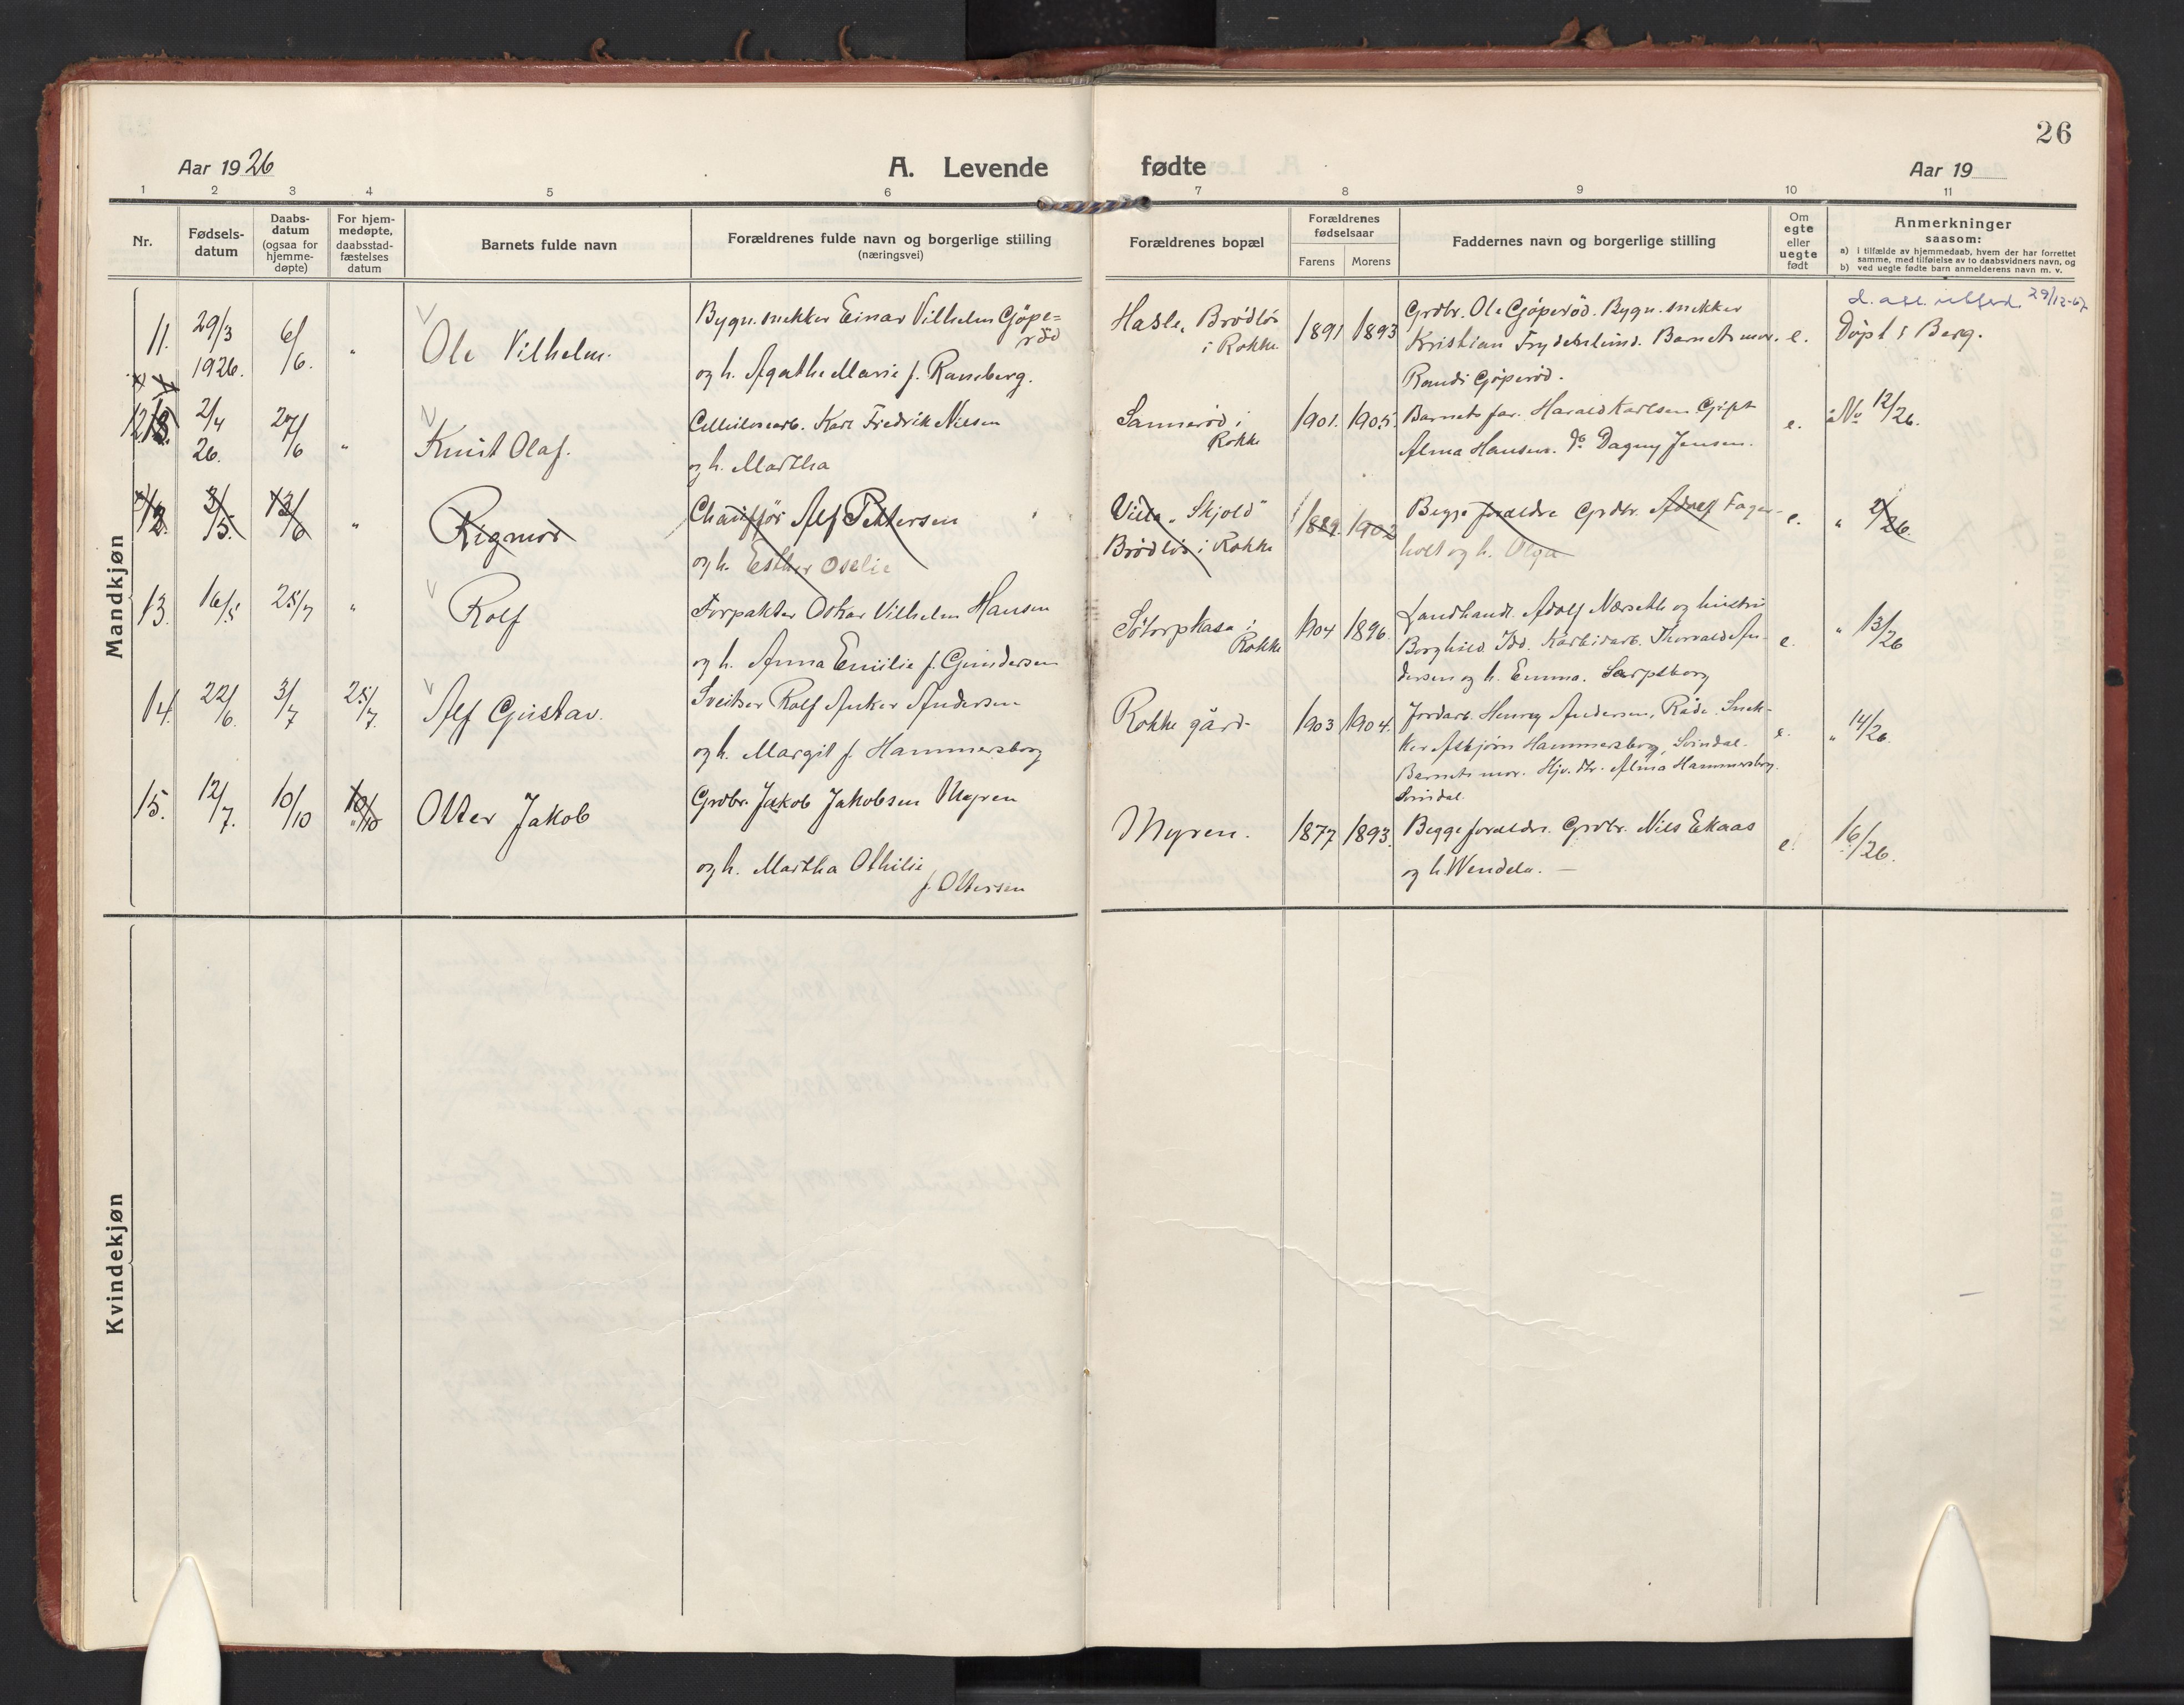 26
Aar 1926
A. Levende
fødte
Aar 19
1 2 3 4 5 6 7 8 9 10 11
Nr.
Fødsels-
datum
Daabs-
datum
(ogsaa for
hjemme-
døpte)
For hjem-
medøpte,
daabsstad-
fæstelses
datum
Barnets fulde navn
Forældrenes fulde navn og borgerlige stilling
(næringsvei)
Forældrenes bopæl
Forældrenes
fødselsaar
Farens Morens
Faddernes navn og borgerlige stilling
Om
egte
eller
uegte
født
Anmerkninger
saasom:
a) i tilfælde av hjemmedaab, hvem der har forrettet
samme, med tilføielse av to daabsvidners navn, og
b) ved uegte fødte barn anmelderens navn m. v.
Mandkjøn
11.
29/3
1926.
6/6.
"
Ole Vilhelm.
Bygn.snekker Einar Vilhelm Gjøpe=
rød
og h. Agathe Marie f. Ramberg.
Hasle, Brødløs
i Rokke
1891 1893
Grdbr. Ole Gjøperød. Bygn. snekker
Kristian Frydenlund. Barnets mor.
Randi Gjøperød.
e.
29/12-62
Døpt i Berg.
12
2/4
26.
27/6
"
Knut Olaf.
Cellulosearb. Karl Fredrik Nilsen
og h. Martha
Sannerød i
Rokke
1901. 1905.
Barnets far. Harald Karlsen. Gift
Alma Hansen. do Dagny Jensen.
e.
No 12/26.
12.
2/5.
13/6
"
Rigmor
Chauffør Alf Pettersen
og h. Esther Oselie
Villa "Skjold"
Brødløs i Rokke
1889. 1902
Begge forældre Grdbr. Adolf Fager-
holt og h. Olga
e.
" 2/26.
13.
16/5
25/7
"
Rolf
Forpakter Oskar Vilhelm Hansen
og h. Anna Emilie f. Gundersen
Søtorpkasa i
Rokke
1904 1896.
Landhandl. Adolf Nærseth og hustru
Borghild. Idd. Karbidarb. Thorvald An-
dersen og h. Emma. Sarpsborg
e.
" 13/26
14.
22/6.
3/7
25/7.
Alf Gustav.
Sveitser Rolf Anker Andersen
og h. Margit f. Hammersborg
Rokke gård
1903 1904.
Jordarb. Henry Andersen, Råde. Snek-
ker Asbjørn Hammersborg, Svindal.
Barnets mor. Hjv. dtr. Alma Hammersborg
Svindal.
e.
" 14/26
15.
12/7.
10/10
10/10
Otter Jakob
Grdbr. Jakob Jakobsen Myren
og h. Martha Othilie
f. Ottersen
Myren.
1877 1893.
Begge forældre. Grdbr. Nils Ekaas
og h. Wendela. —
e.
16/26.
Kvindekjøn